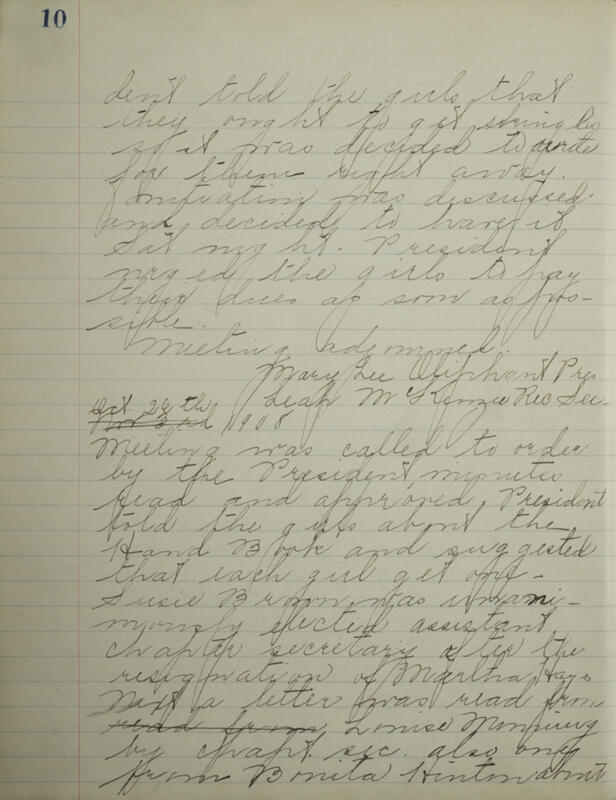 10
dent told the girls that
they ought to get shingles
so it was decided to write
for them right away.
Initiation was discussed
and decided to have it
Sat night. President
urged the girls to pay
their dues as soon as pos-
sible.
Meeting adjourned.
Mary Lee Oliphant Pres
Leah McKenzie Rec Sec.
Oct. 29th
Nov 2nd 1908
Meeting was called to order
by the President minutes
read and approved. President
told the girls about the
Hand Book and suggested
that each girl get one.
Susie Brown was unani-
mously elected assistant
chapter secretary after the
resignation of Martha Hays
Next a letter was read from
read from Louise Monning
by chapt. sec. also one
from Bonita Hinton about